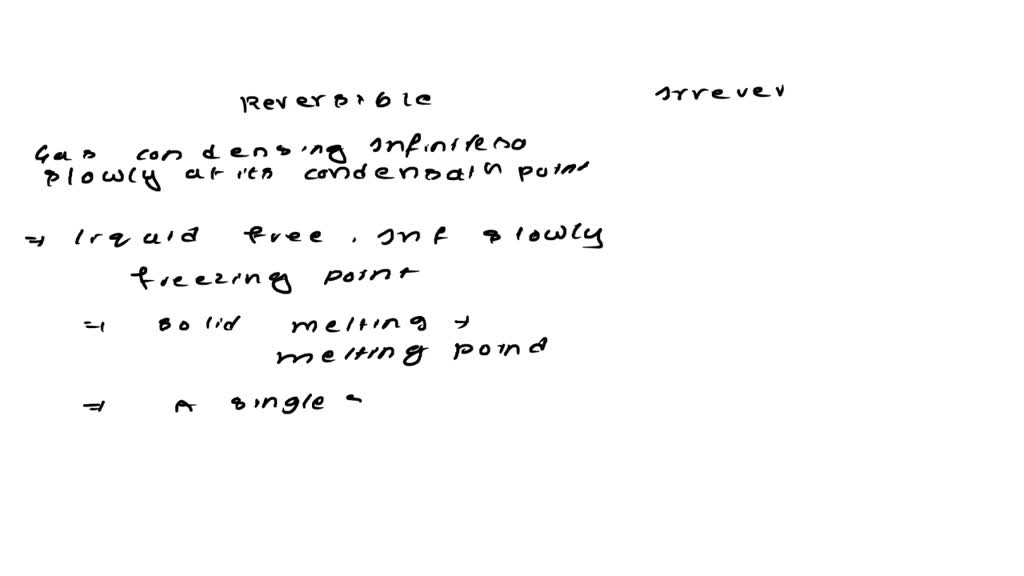 Reversible irrever
Gas condensing infiniteso
slowly at its condensain point
⇒ liquid free. inf slowly
freezing point
⇒ solid melting →
melting poind
⇒ A single s